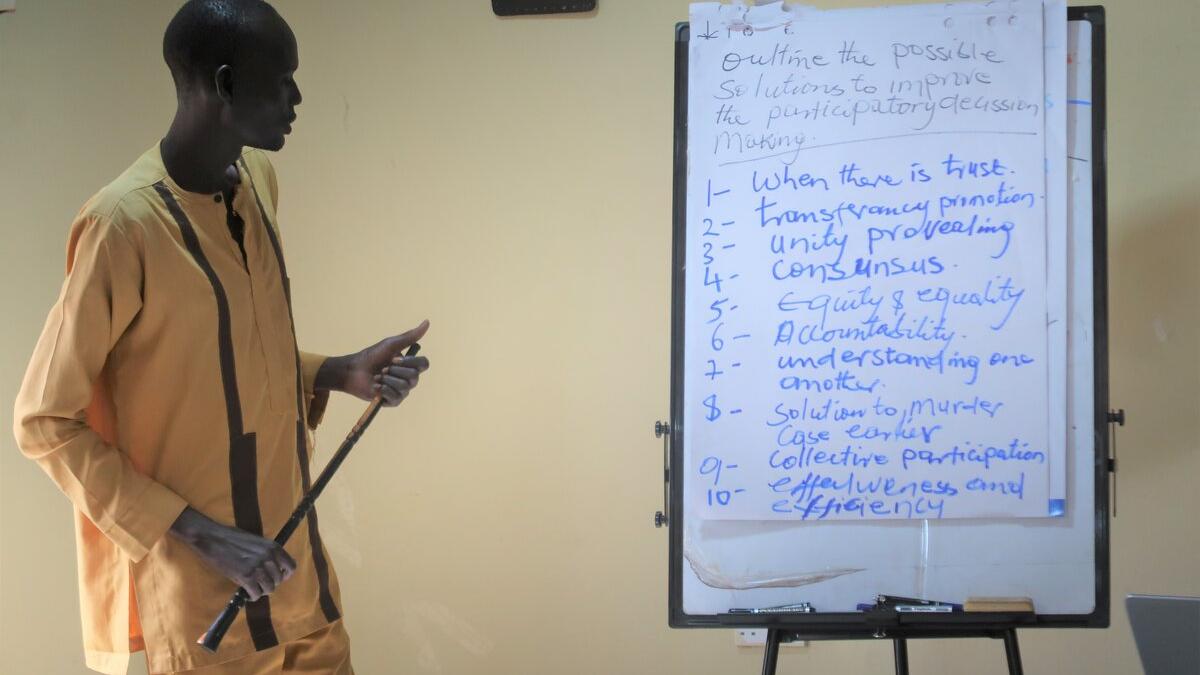 outline the possible
solutions to improve
the participatory decission
making.
1- when there is trust.
2- transferancy promotion.
3- unity provealing
4- consunsus.
5- Equity & equality
6- Accountability.
7- understanding one
another.
8- solution to, murder
case earlier
9- collective participation
10- effectiveness and
efficiency